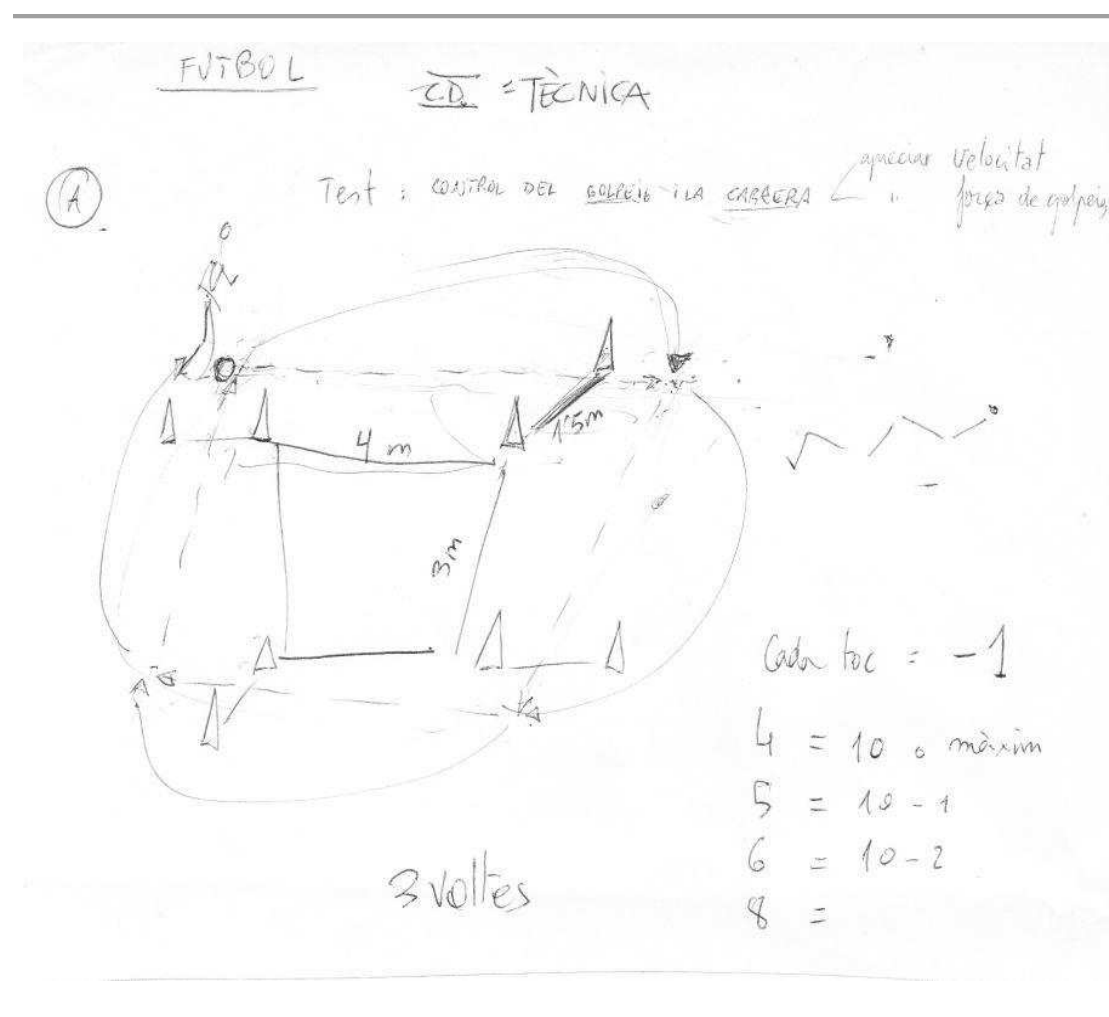 FUTBOL
C.D. = TÈCNICA
A.
Test : CONTROL DEL GOLPEIG i LA CARRERA
apreciar velocitat
" força de golpeig
4 m
1'5m
3m
Cada toc = -1
4 = 10 o màxim
5 = 10 - 1
6 = 10 - 2
8 =
3 voltes